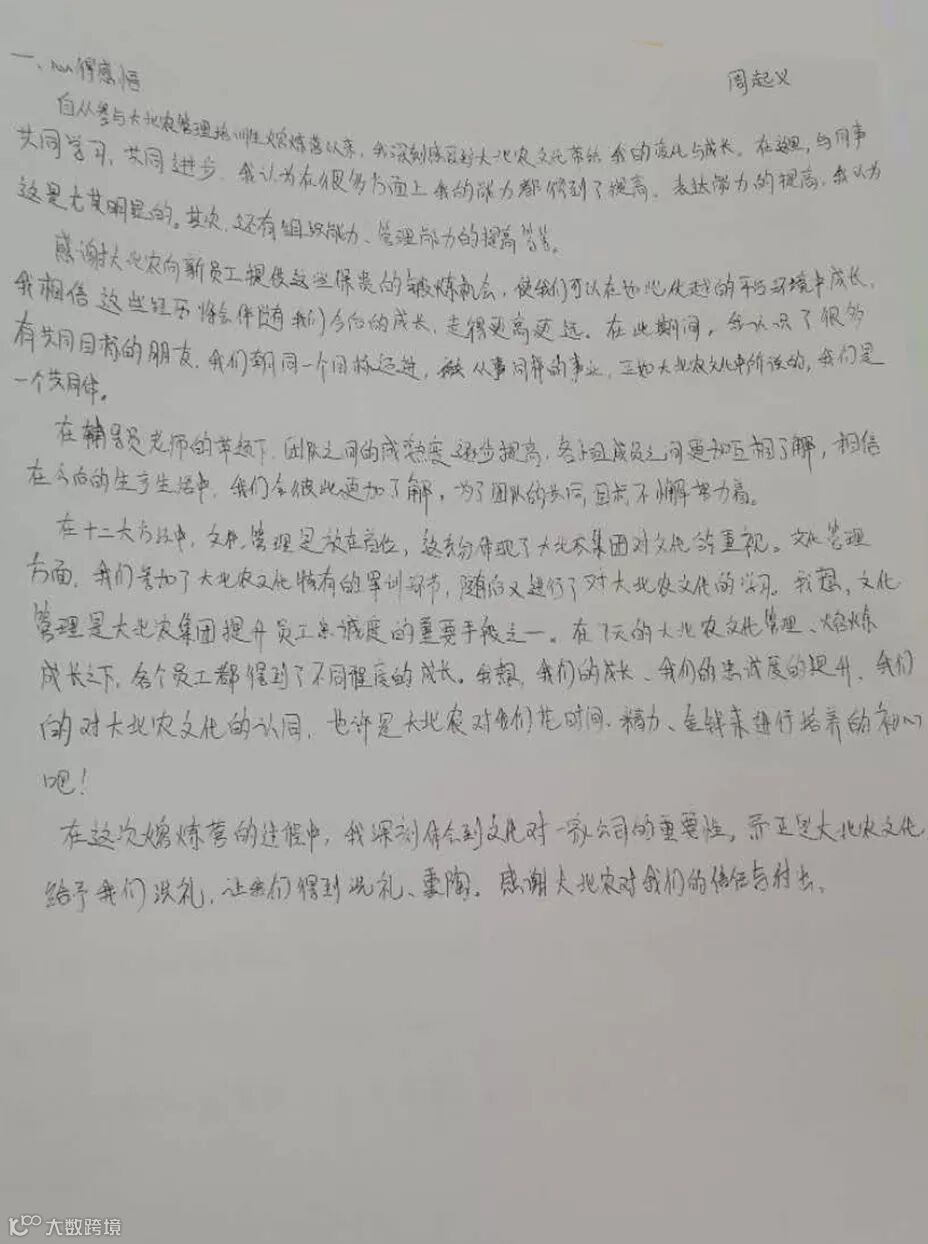 一、心得感悟
周起义
自从参与大北农管理培训生熔炼营以来，我深刻感受到大北农文化带给我的变化与成长。在这里，与同事
共同学习，共同进步，我认为在很多方面上我的能力都得到了提高，表达能力的提高，我认为
这是尤其明显的。其次，还有组织能力、管理能力的提高等等。
感谢大北农向新员工提供这些保贵的锻炼机会，使我们可以在如此优越的平台环境中成长，
我相信这些经历将会伴随着我们今后的成长，走得更高更远。在此期间，我认识了很多
有共同目标的朋友，我们朝同一个目标迈进，从事同样的事业，正如大北农文化中所说的，我们是
一个共同体。
在辅导员老师的带领下，团队之间的成熟度逐步提高，各小组成员之间更加互相了解，相信
在今后的生产生活中，我们会彼此更加了解，为了团队的共同目标不懈努力着。
在十二大方法中，文化管理是放在首位，这充分体现了大北农集团对文化的重视。文化管理
方面，我们参加了大北农文化特有的军训环节，随后又进行了对大北农文化的学习。我想，文化
管理是大北农集团提升员工忠诚度的重要手段之一。在7天的大北农文化管理、熔炼
成长之下，各个员工都得到了不同程度的成长。我想，我们的成长、我们的忠诚度的提升、我们
的对大北农文化的认同，也许是大北农对我们花时间、精力、金钱来进行培养的初心
吧！
在这次熔炼营的过程中，我深刻体会到文化对一家公司的重要性，亦正是大北农文化
给予我们洗礼，让我们得到洗礼、熏陶。感谢大北农对我们的信任与付出。
大数跨境